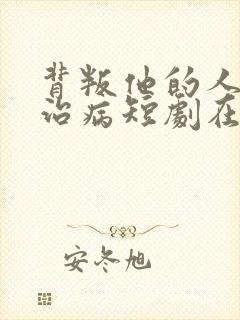 背叛他的人
治病短劇在
安冬旭